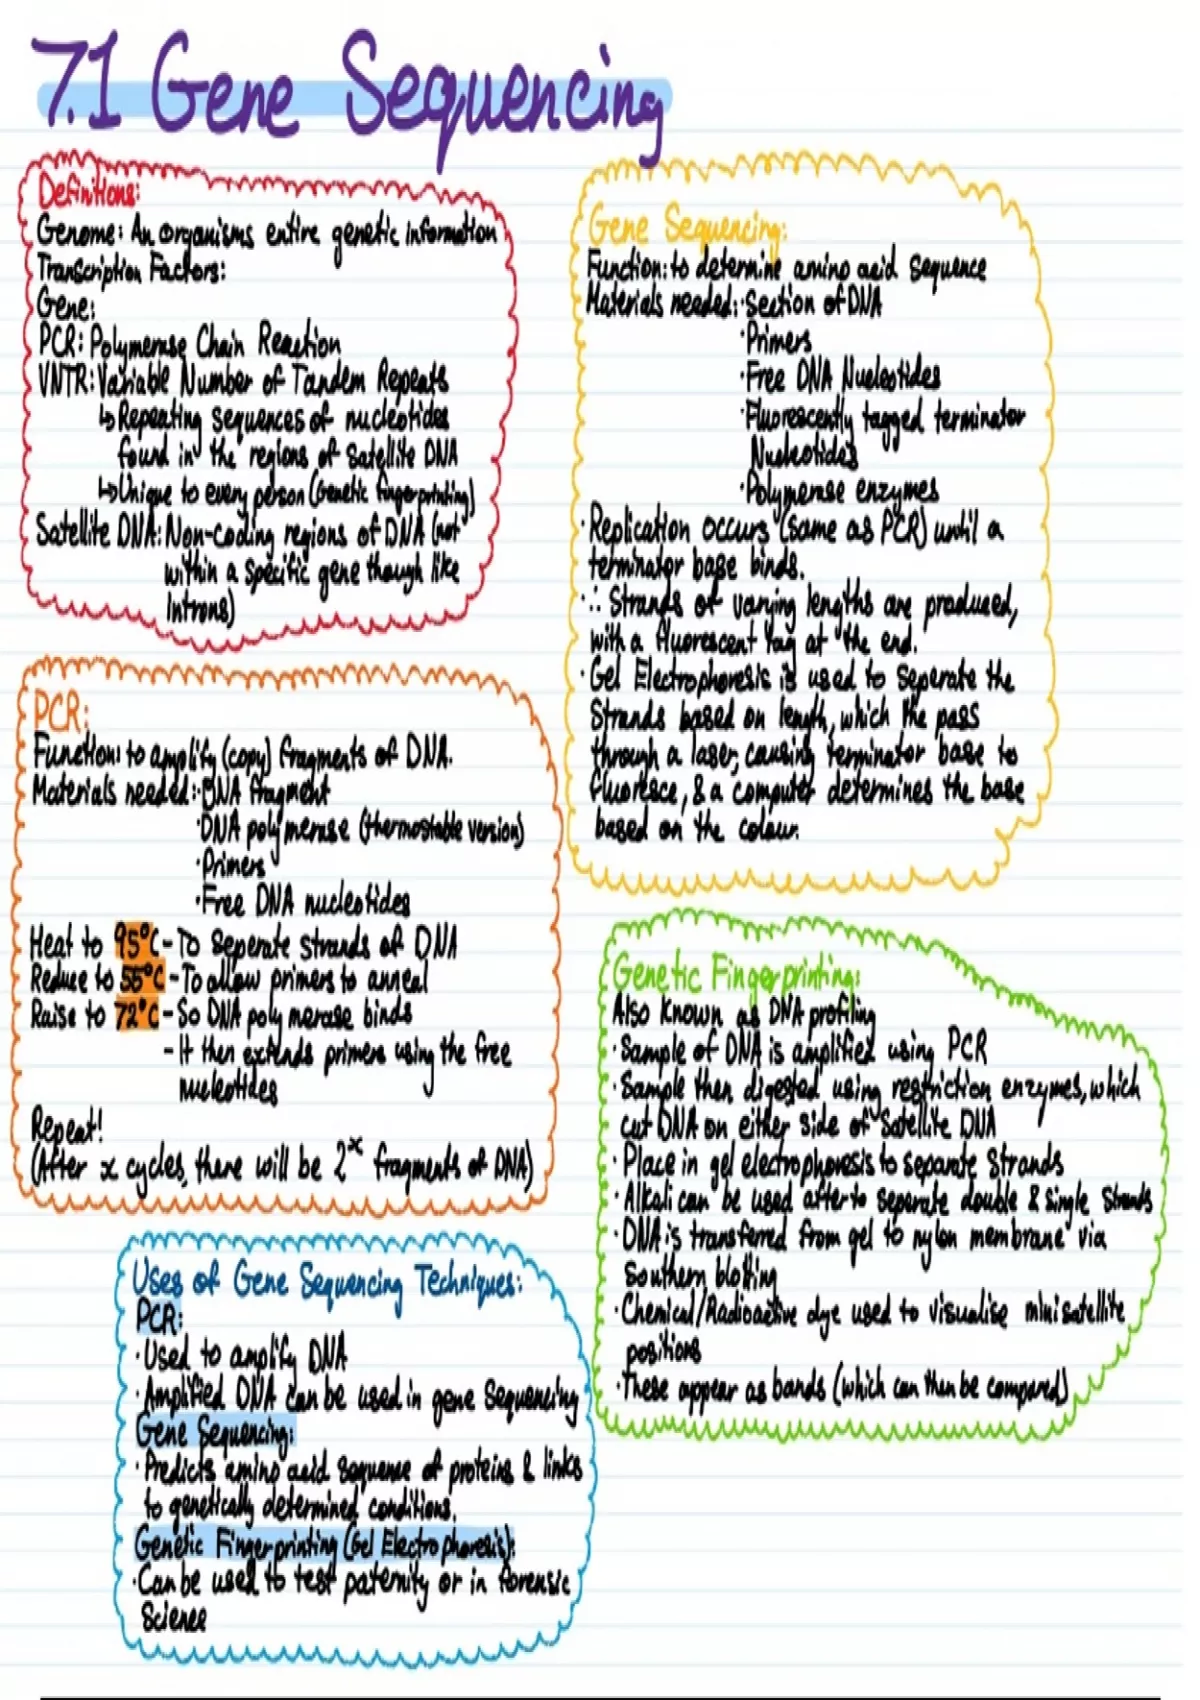 7.1 Gene Sequencing
Definitions:
Genome: An Organisms entire genetic information
Transcription Factors:
Gene:
PCR: Polymerase Chain Reaction
VNTR: Variable Number of Tandem Repeats
↳Repeating sequences of nucleotides
found in the regions of Satellite DNA
↳Unique to every person (Genetic fingerprinting)
Satellite DNA: Non-coding regions of DNA (not
within a specific gene though like
introns)
PCR:
Function: to amplify (copy) fragments of DNA.
Materials needed: ·DNA fragment
·DNA polymerase (thermostable version)
·Primers
·Free DNA nucleotides
Heat to 95°C - To Seperate strands of DNA
Reduce to 55°C - To allow primers to anneal
Raise to 72°C - So DNA polymerase binds
- It then extends primers using the free
nucleotides
Repeat!
(After x cycles, there will be 2ˣ fragments of DNA)
Uses of Gene Sequencing Techniques:
PCR:
·Used to amplify DNA
·Amplified DNA can be used in gene Sequencing
Gene Sequencing:
·Predicts amino acid sequence of proteins & links
to genetically determined conditions.
Genetic Fingerprinting (Gel Electrophoresis):
·Can be used to test paternity or in forensic
Science
Gene Sequencing:
Function: to determine amino acid Sequence
Materials needed: ·Section of DNA
·Primers
·Free DNA Nucleotides
·Fluorescently tagged terminator
Nucleotides
·Polymerase enzymes
·Replication occurs (same as PCR) until a
terminator base binds.
·∴ Strands of varying lengths are produced,
with a fluorescent tag at the end.
·Gel Electrophoresis is used to Seperate the
Strands based on length, which the pass
through a laser, causing terminator base to
fluoresce, & a computer determines the base
based on the colour.
Genetic Fingerprinting:
Also Known as DNA profiling
·Sample of DNA is amplified using PCR
·Sample then digested using restriction enzymes, which
cut DNA on either side of Satellite DNA
·Place in gel electrophoresis to separate Strands
·Alkali can be used after to seperate double & single Strands
·DNA is transferred from gel to nylon membrane via
Southern blotting
·Chemical/Radioactive dye used to visualise minisatellite
positions
·These appear as bands (which can then be compared)